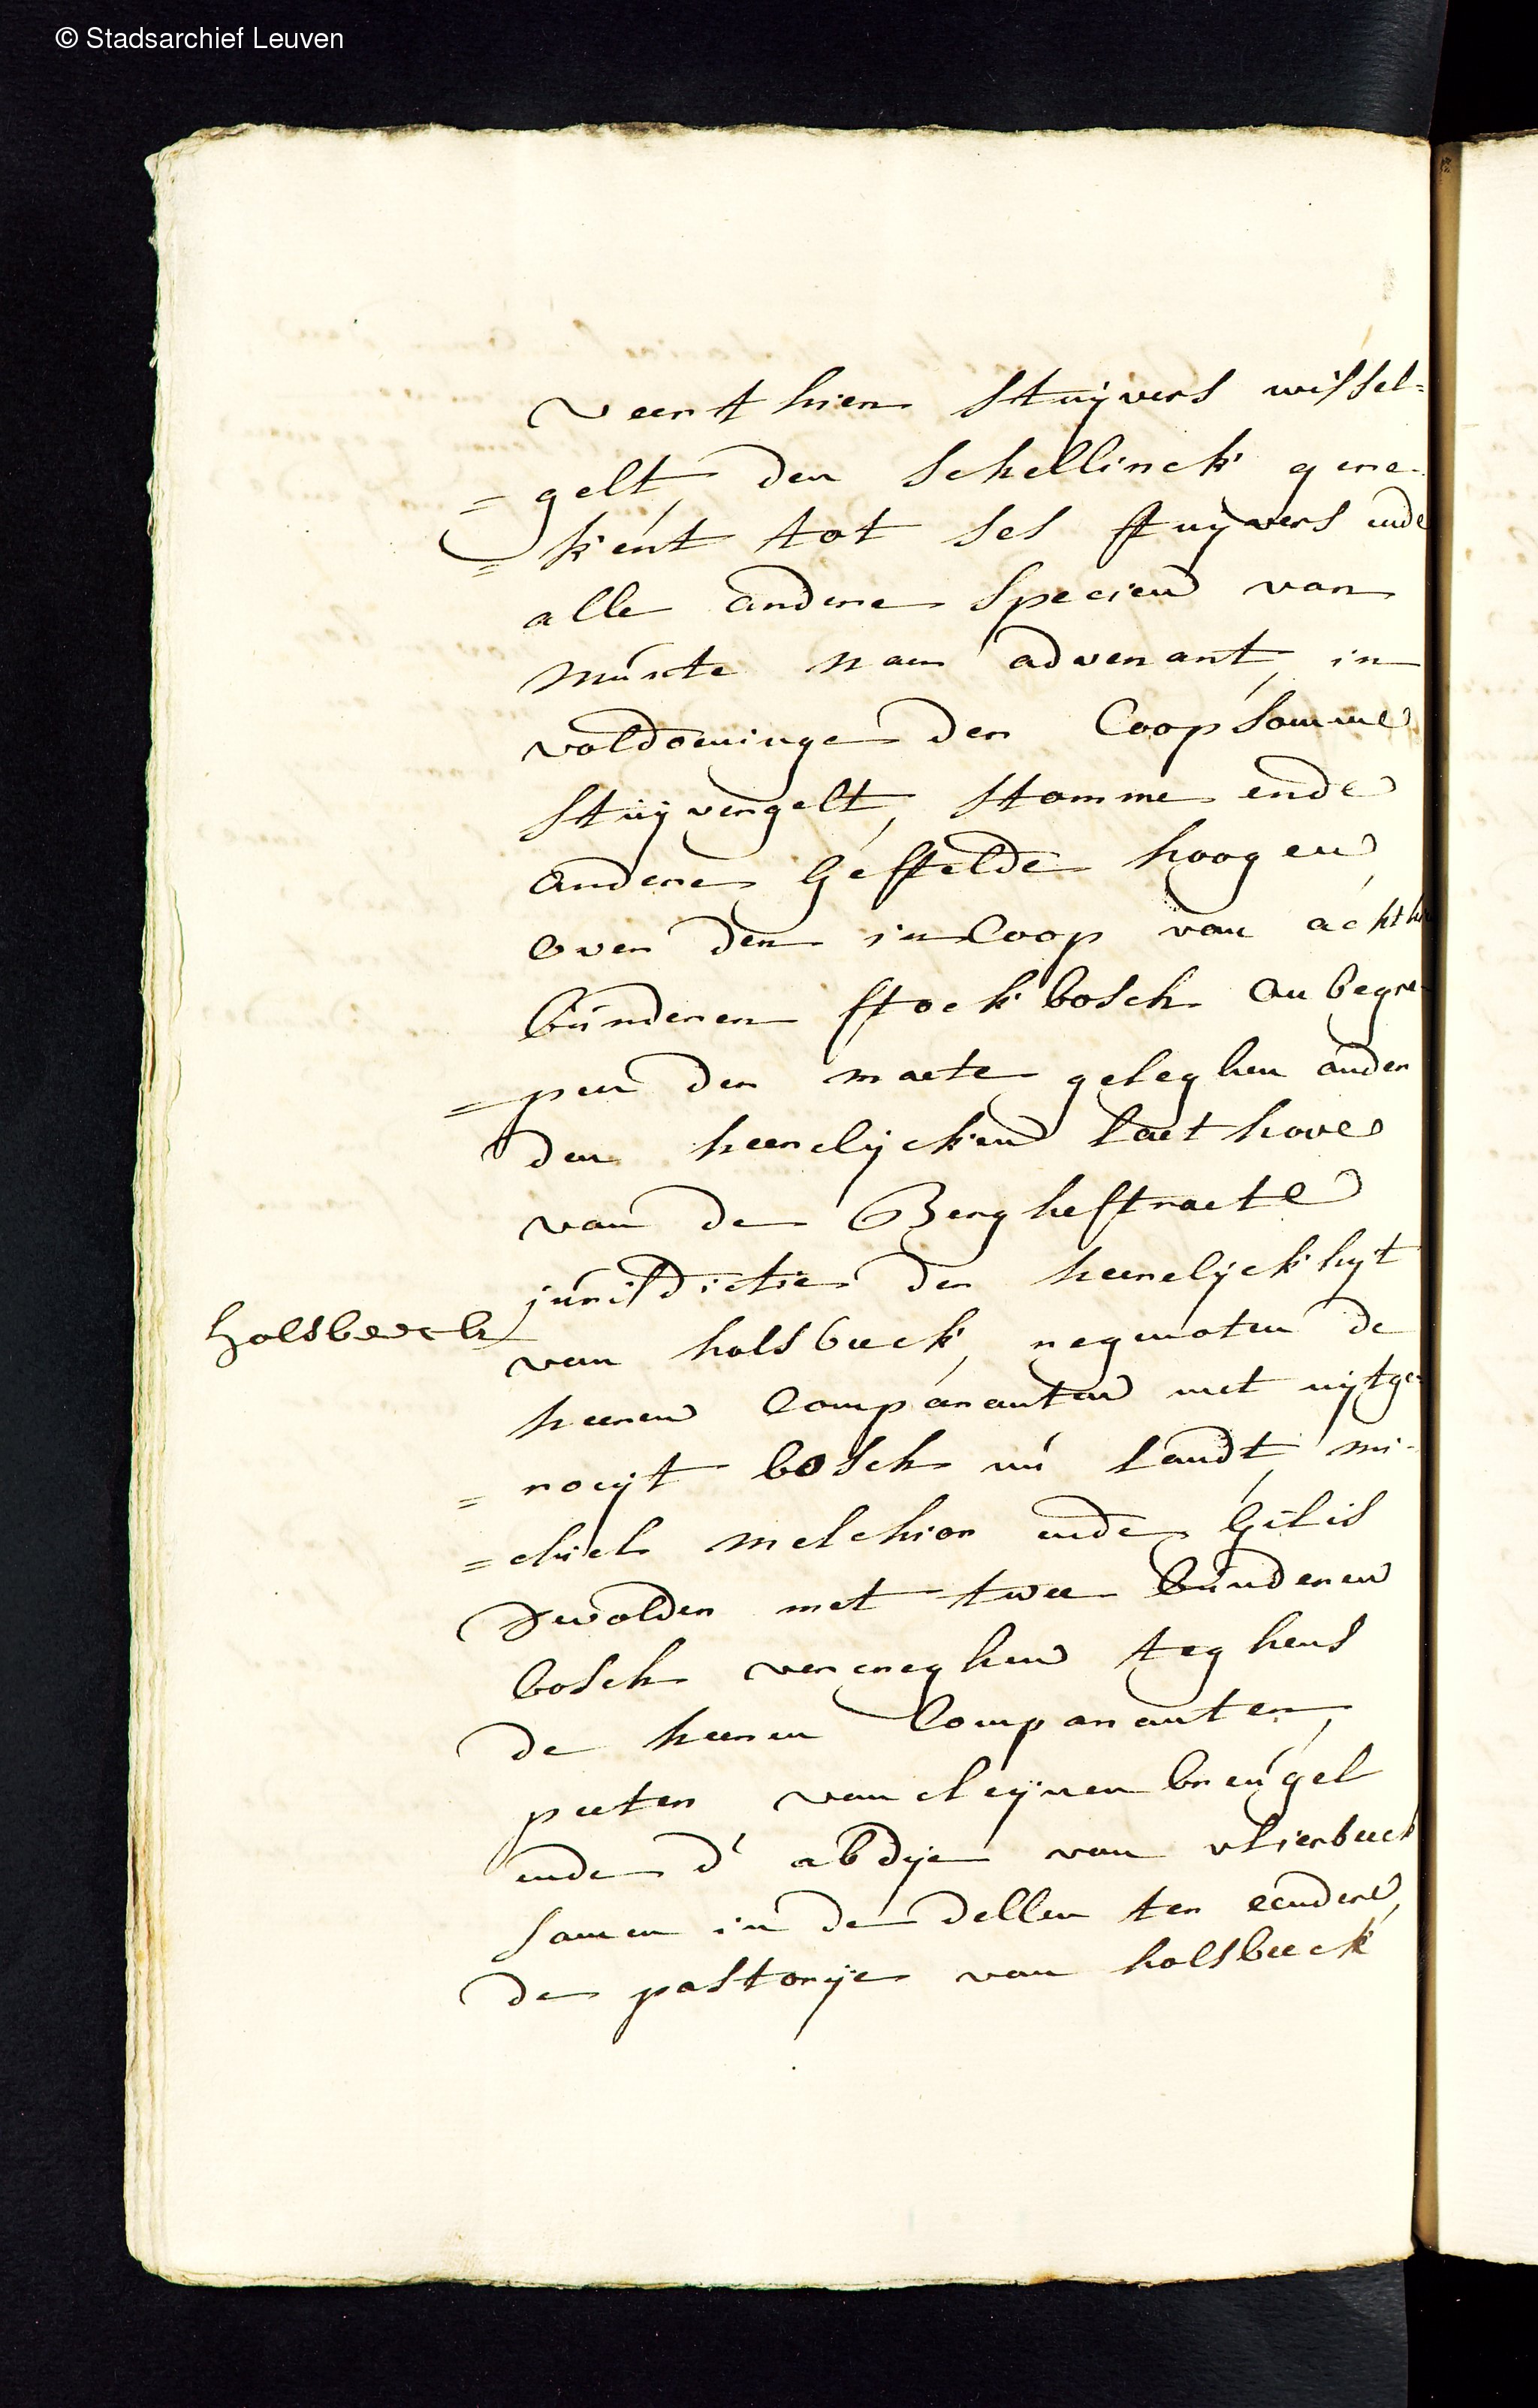 © Stadsarchief Leuven
veerthien stuijvers wissel=
=gelt, den schellinck gere-
=kent tot ses stuijvers ende
alle andere specien van
munte naer advenant, in
voldoeninge der Coopsomme
stuijvergelt, stomme ende
andere gestelde hoogen,
over den inCoop van achthien
bunderen stockbosch onbegre-
=pen der maete geleghen onder
den heerelijcken laethove
van de Berghestraete
jurisdictie der heerelijckhijt
van holsbeeck, regenoten de
holsbeeck
heeren Comparanten met uijtge-
=roeijt bosch nu landt, mi-
=chiel melchior ende Gilis
Dewolder met twee bunderen
bosch vercreghen teghens
de heeren Comparanten,
peeter van cleijnenbreugel
ende d' abdije van vlierbeeck
samen in de dellen ter eendere,
de pastorije van holsbeeck